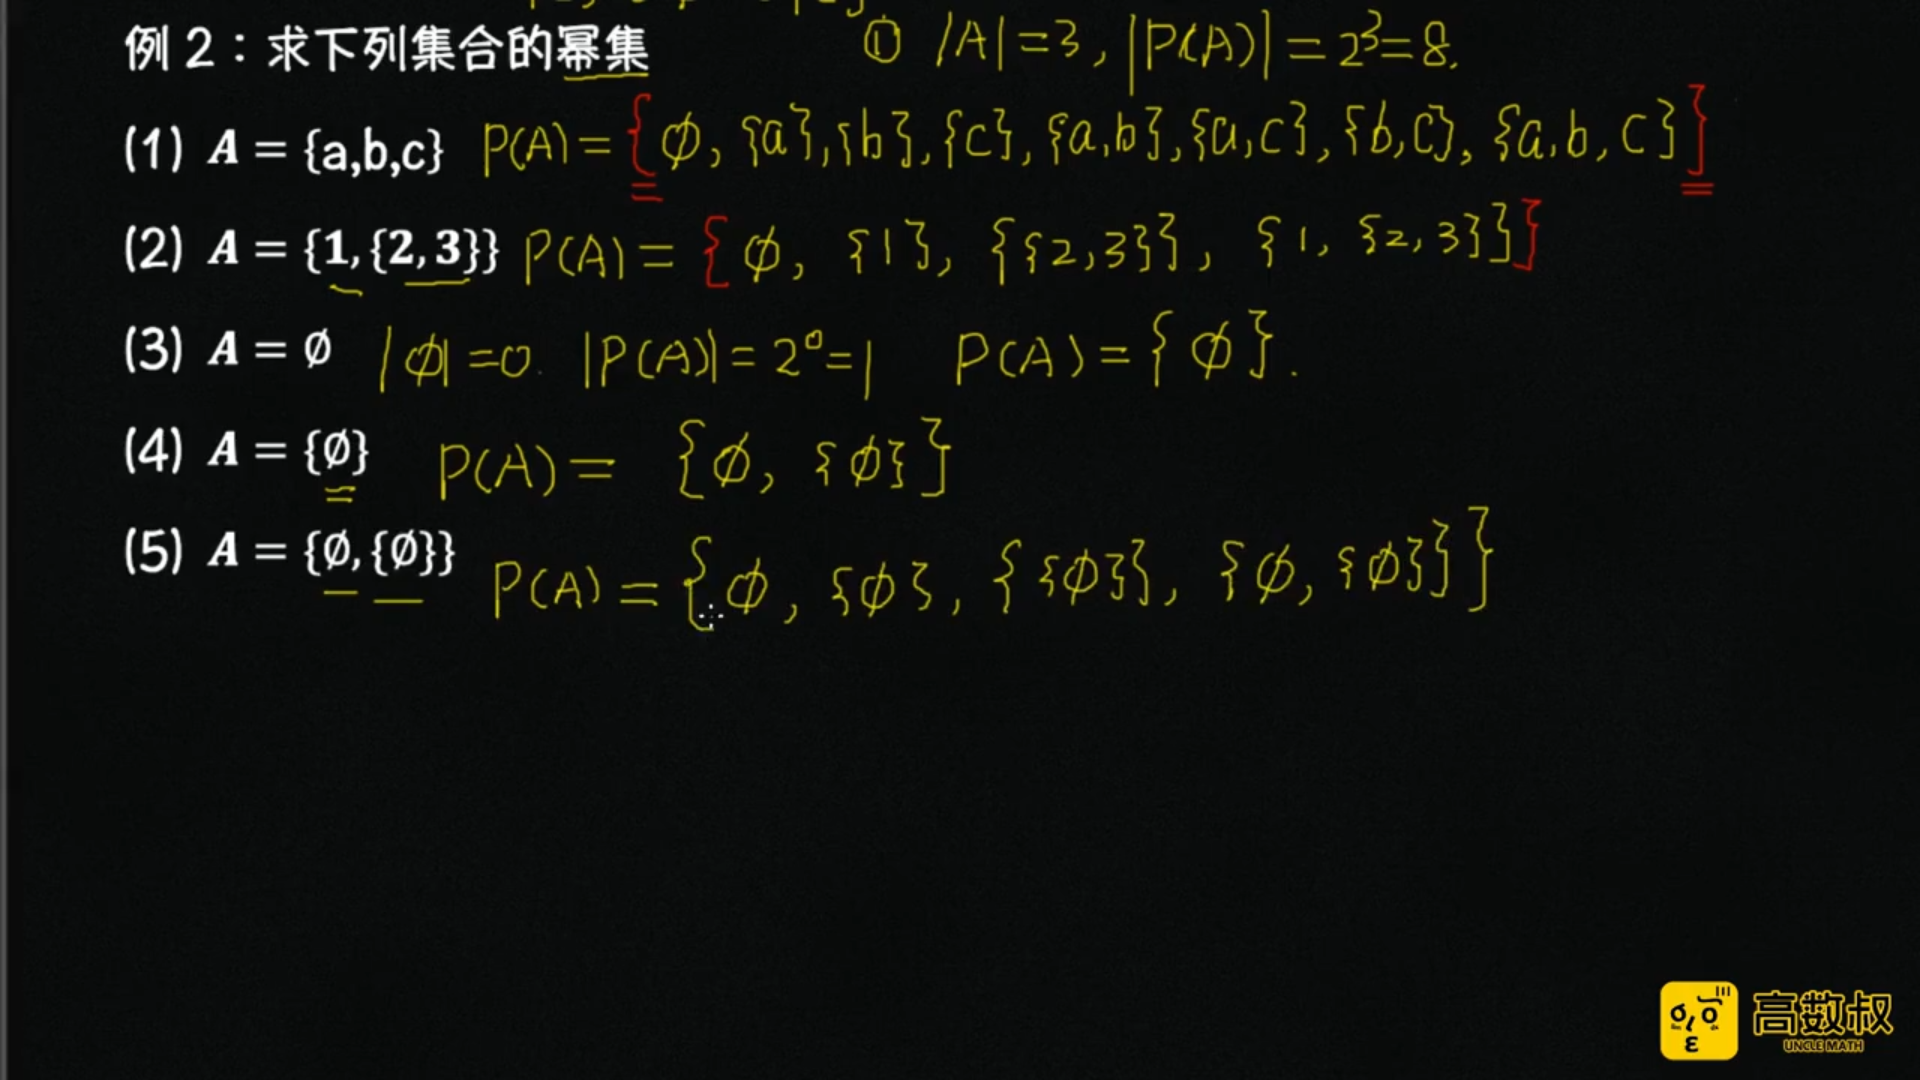 例 2：求下列集合的幂集 ① |A|=3, |P(A)|=2³=8.
(1) A = {a,b,c} P(A)={∅, {a},{b},{c},{a,b},{a,c},{b,c},{a,b,c}}
(2) A = {1,{2,3}} P(A)={∅, {1}, {{2,3}}, {1,{2,3}}}
(3) A = ∅ |∅|=0. |P(A)|=2⁰=1 P(A)={∅}.
(4) A = {∅} P(A)= {∅, {∅}}
(5) A = {∅,{∅}} P(A)={∅, {∅}, {{∅}}, {∅,{∅}}}
高数叔
UNCLE MATH